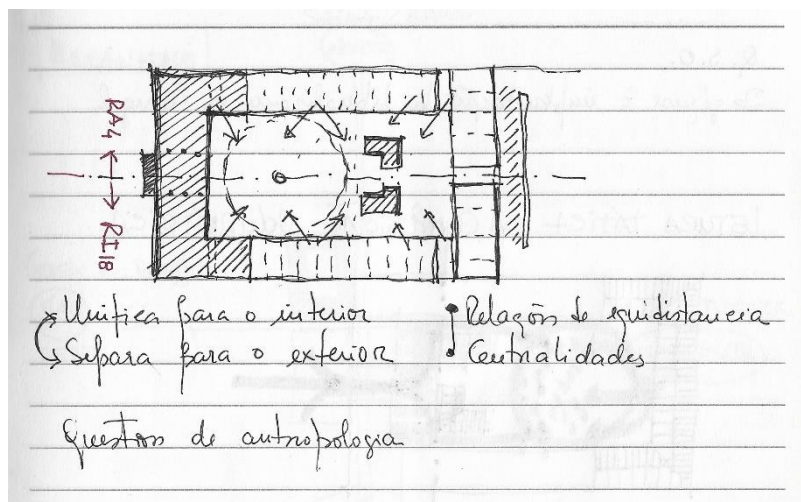 RA4
RI18
Unifica para o interior
Separa para o exterior
• Relações de equidistancia
• Centralidades
Question de antropologia